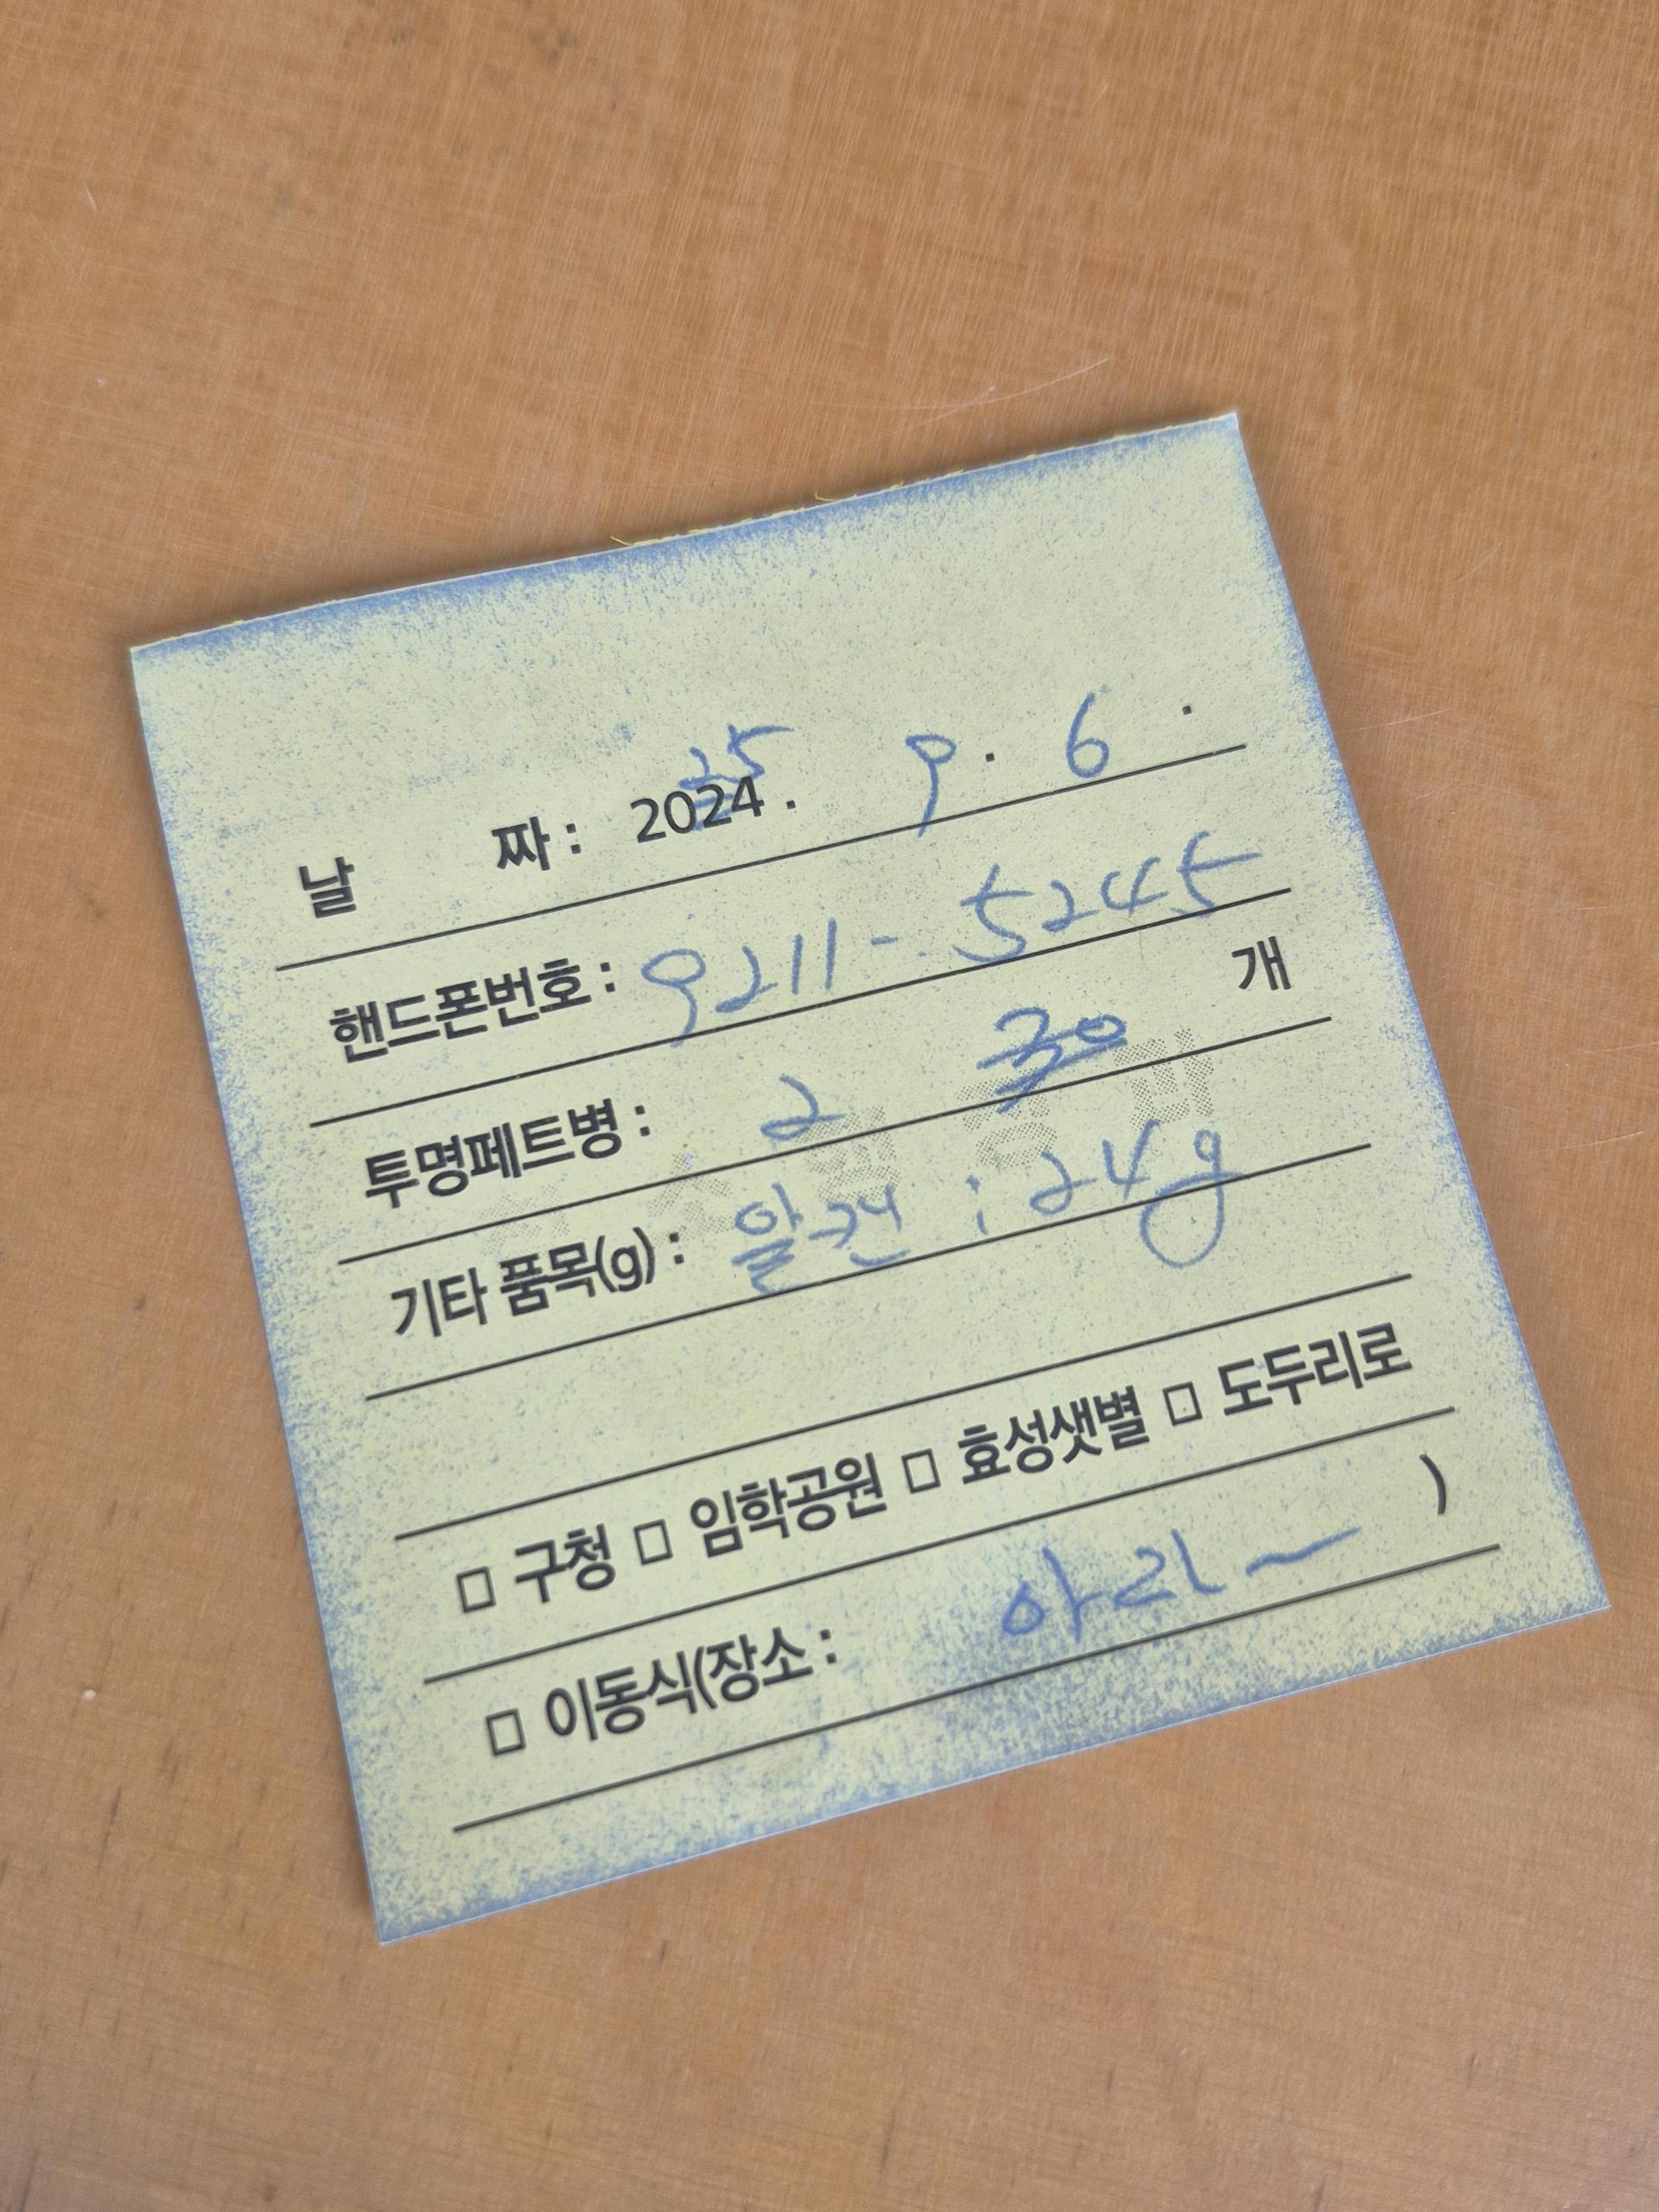 25
날 짜 : 2024 . 9 . 6 .
핸드폰번호 : 9211 - 5245
투명페트병 : 2 30 개
기타 품목(g) : 알캔 : 24g
□ 구청 □ 임학공원 □ 효성샛별 □ 도두리로
□ 이동식(장소 : 아라~ )